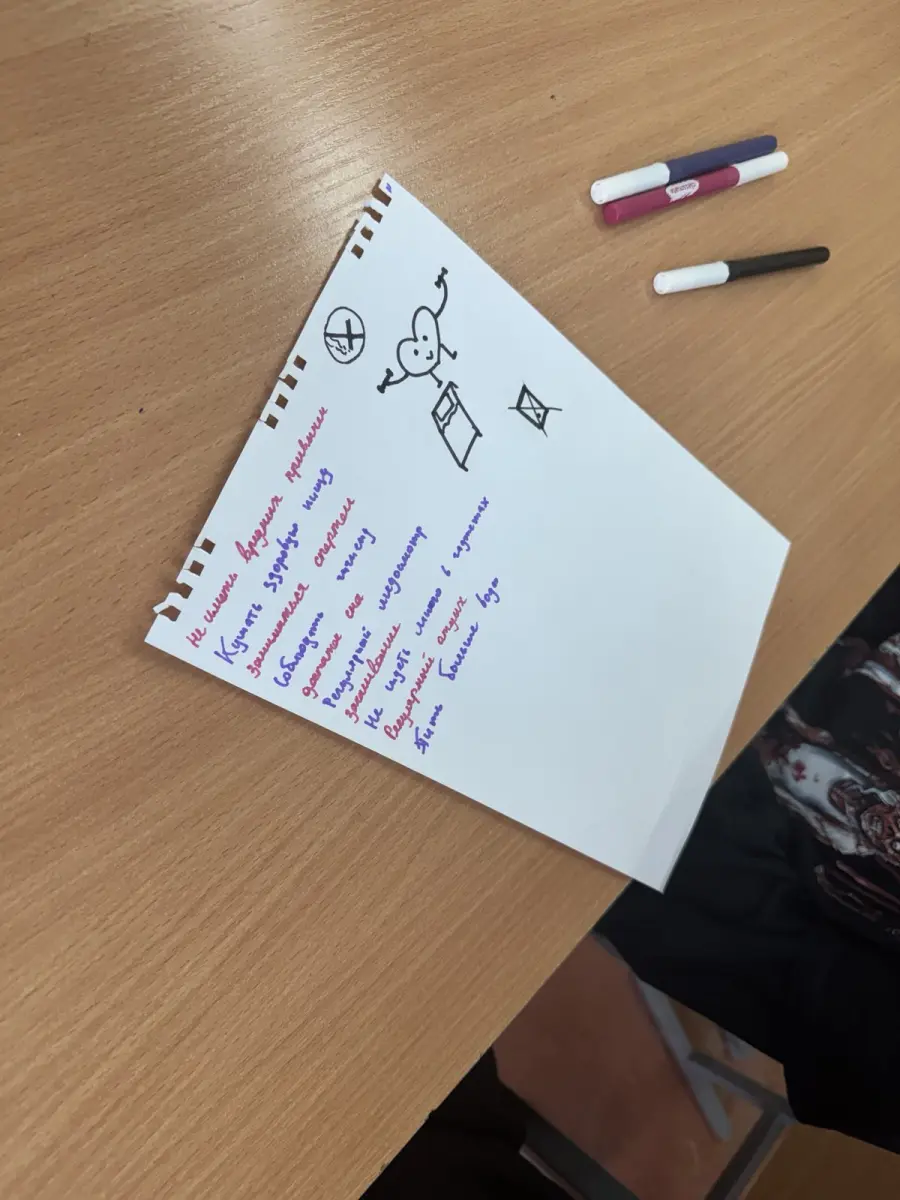 Не иметь вредных привычек
Кушать здоровую пищу
Заниматься спортом
Соблюдать гигиену
Регулярный медосмотр
Закаливание
Не сидеть много в гаджетах
Регулярный отдых
Пить больше воды